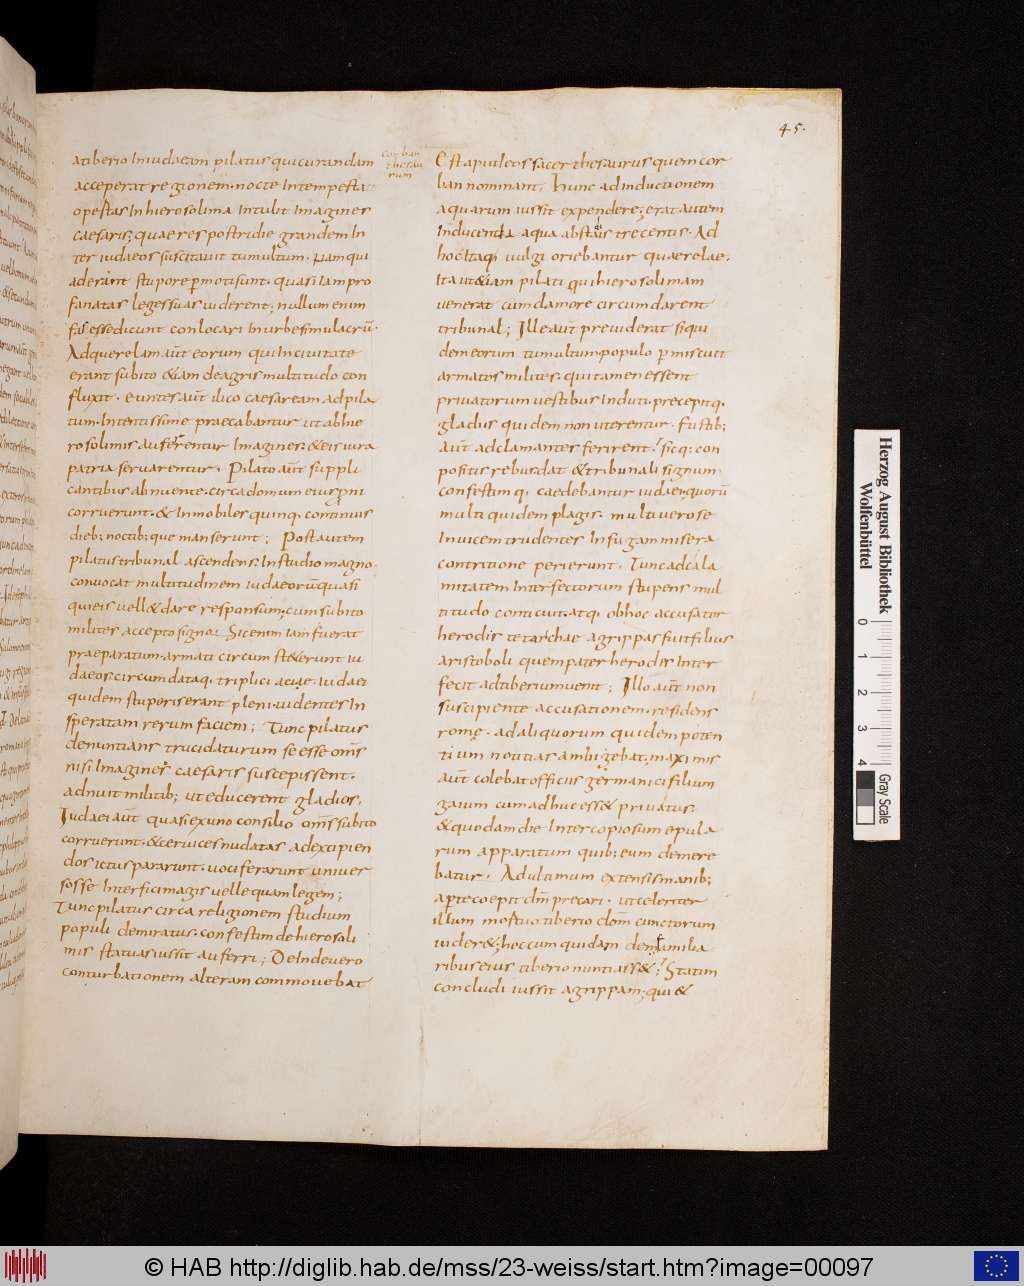 45.
atiberio Iniudaeam pilatus quicurandam
acceperat regionem. nocte Intempesta
opertas Inhierosolima Intulit Imagines
caesaris; quae res postridie grandem In
ter iudaeos suscitavit tumultum. Nam qui
aderant stupore p̄motisunt. quasi Iampro
fanatas leges suas viderent; nullum enim
fas esse dicunt conlocari Inurbe simulacrū.
Adquerelam aūt eorum qui Incivitate
erant subito &iam deagris multitudo con
fluxit. euntes aūt ilico caesaream adpila
tum. Intentissime praecabantur ut abhie
rosolimis auferrentur Imagines. &eis iura
patria servarentur. Pilato aūt suppli
cantibus abnuente. circa domum eius p̄ni
corruerunt. & Inmobiles quinq. continuis
dieb; noctib; que manserunt; Post autem
pilatus tribunal ascendens Instudio magno.
convocat multitudinem iudaeorū quasi
quieis vell& dare responsum; cum subito
milites accepto signo. Sic enim Iam fuerat
praeparatum. armati circum stèterunt iu
daeos circumdataq. triplici aciae. Iudaei
quidem stupefacti
speratam rerum faciem; Tunc pilatus
denuntians trucidaturum se esse om̄s
nisi Imagines caesaris suscepissent.
adnuit militib; ut educerent gladios.
Iudaei aūt quasi ex uno consilio om̄s subito
corruerunt. & cervices nudatas adexcipien
dos ictus pararunt. vociferarunt univer
sosse Interfici magis velle quam legem;
Tunc pilatus circa religionem studium
populi demiratus. confestim dehierosoli
mis statuas iussit auferri; Deinde vero
conturbationem alteram commovebat
corban
thesau
rum
Est aput leos sacer thesaurus quem cor
ban nominant; hunc ad inductionem
aquarum iussit expendere; erat autem
Inducenda aqua abstadiis trecentis. Ad
hoc Itaq; vulgi oriebantur quaerelae.
Ita ut &iam pilati qui hierosolimam
venerat cum clamore circumdarent
tribunal; Ille aūt previderat siqui
dem eorum tumultum. populo p̄miscuit
armatos milites. qui tamen essent
privatorum vestibus Induti. precepitq.
gladiis quidem non uterentur. fustib;
aūt adclamantes ferirent. sicq; con
positis rebus. dat & tribunali signum.
confestimq. caedebantur iudaei. quorū
multi quidem plagis. multi vero se
Invicem trudentes In fugam misera
contritione perierunt. Tunc ad cala
mitatem Interfectorum stupens mul
titudo conticuit. atq. obhoc accusator
herodis tetarchae agrippas fuit filius
aristoboli quem pater herodes Inter
fecit adtiberium venit; Illo aūt non
suscipiente accusationem. residens
romę. ad aliquorum quidem poten
tium notitias ambigebat. maximis
aūt colebat officiis germanici filium
gaium cum adhuc ess& privatus.
& quodam die Inter copiosum epula
rum apparatum quib; eum demere
batur. Ad ultimum extensis manib;
aperte coepit dm̄ precari. ut celeriter
illum mortuo tiberio dom̄ cunctorum
vider&; hoc cum quidam de familia
ribus eius tiberio nuntiass&; Statim
concludi iussit agrippam. qui &
Herzog August Bibliothek
Wolfenbüttel
0 1 2 3 4
Gray Scale
© HAB http://diglib.hab.de/mss/23-weiss/start.htm?image=00097